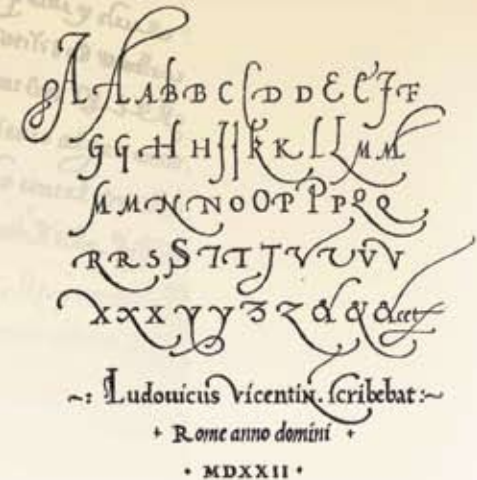 A A A B B C C D D E E F F
G G H H I I K K L L M M
M M N N O O P P P Q Q
R R S S T T T V V V V
X X X Y Y Z Z & & & cet
~: Ludouicus Vicentin. scribebat :~
+ Rome anno domini +
• MDXXII •